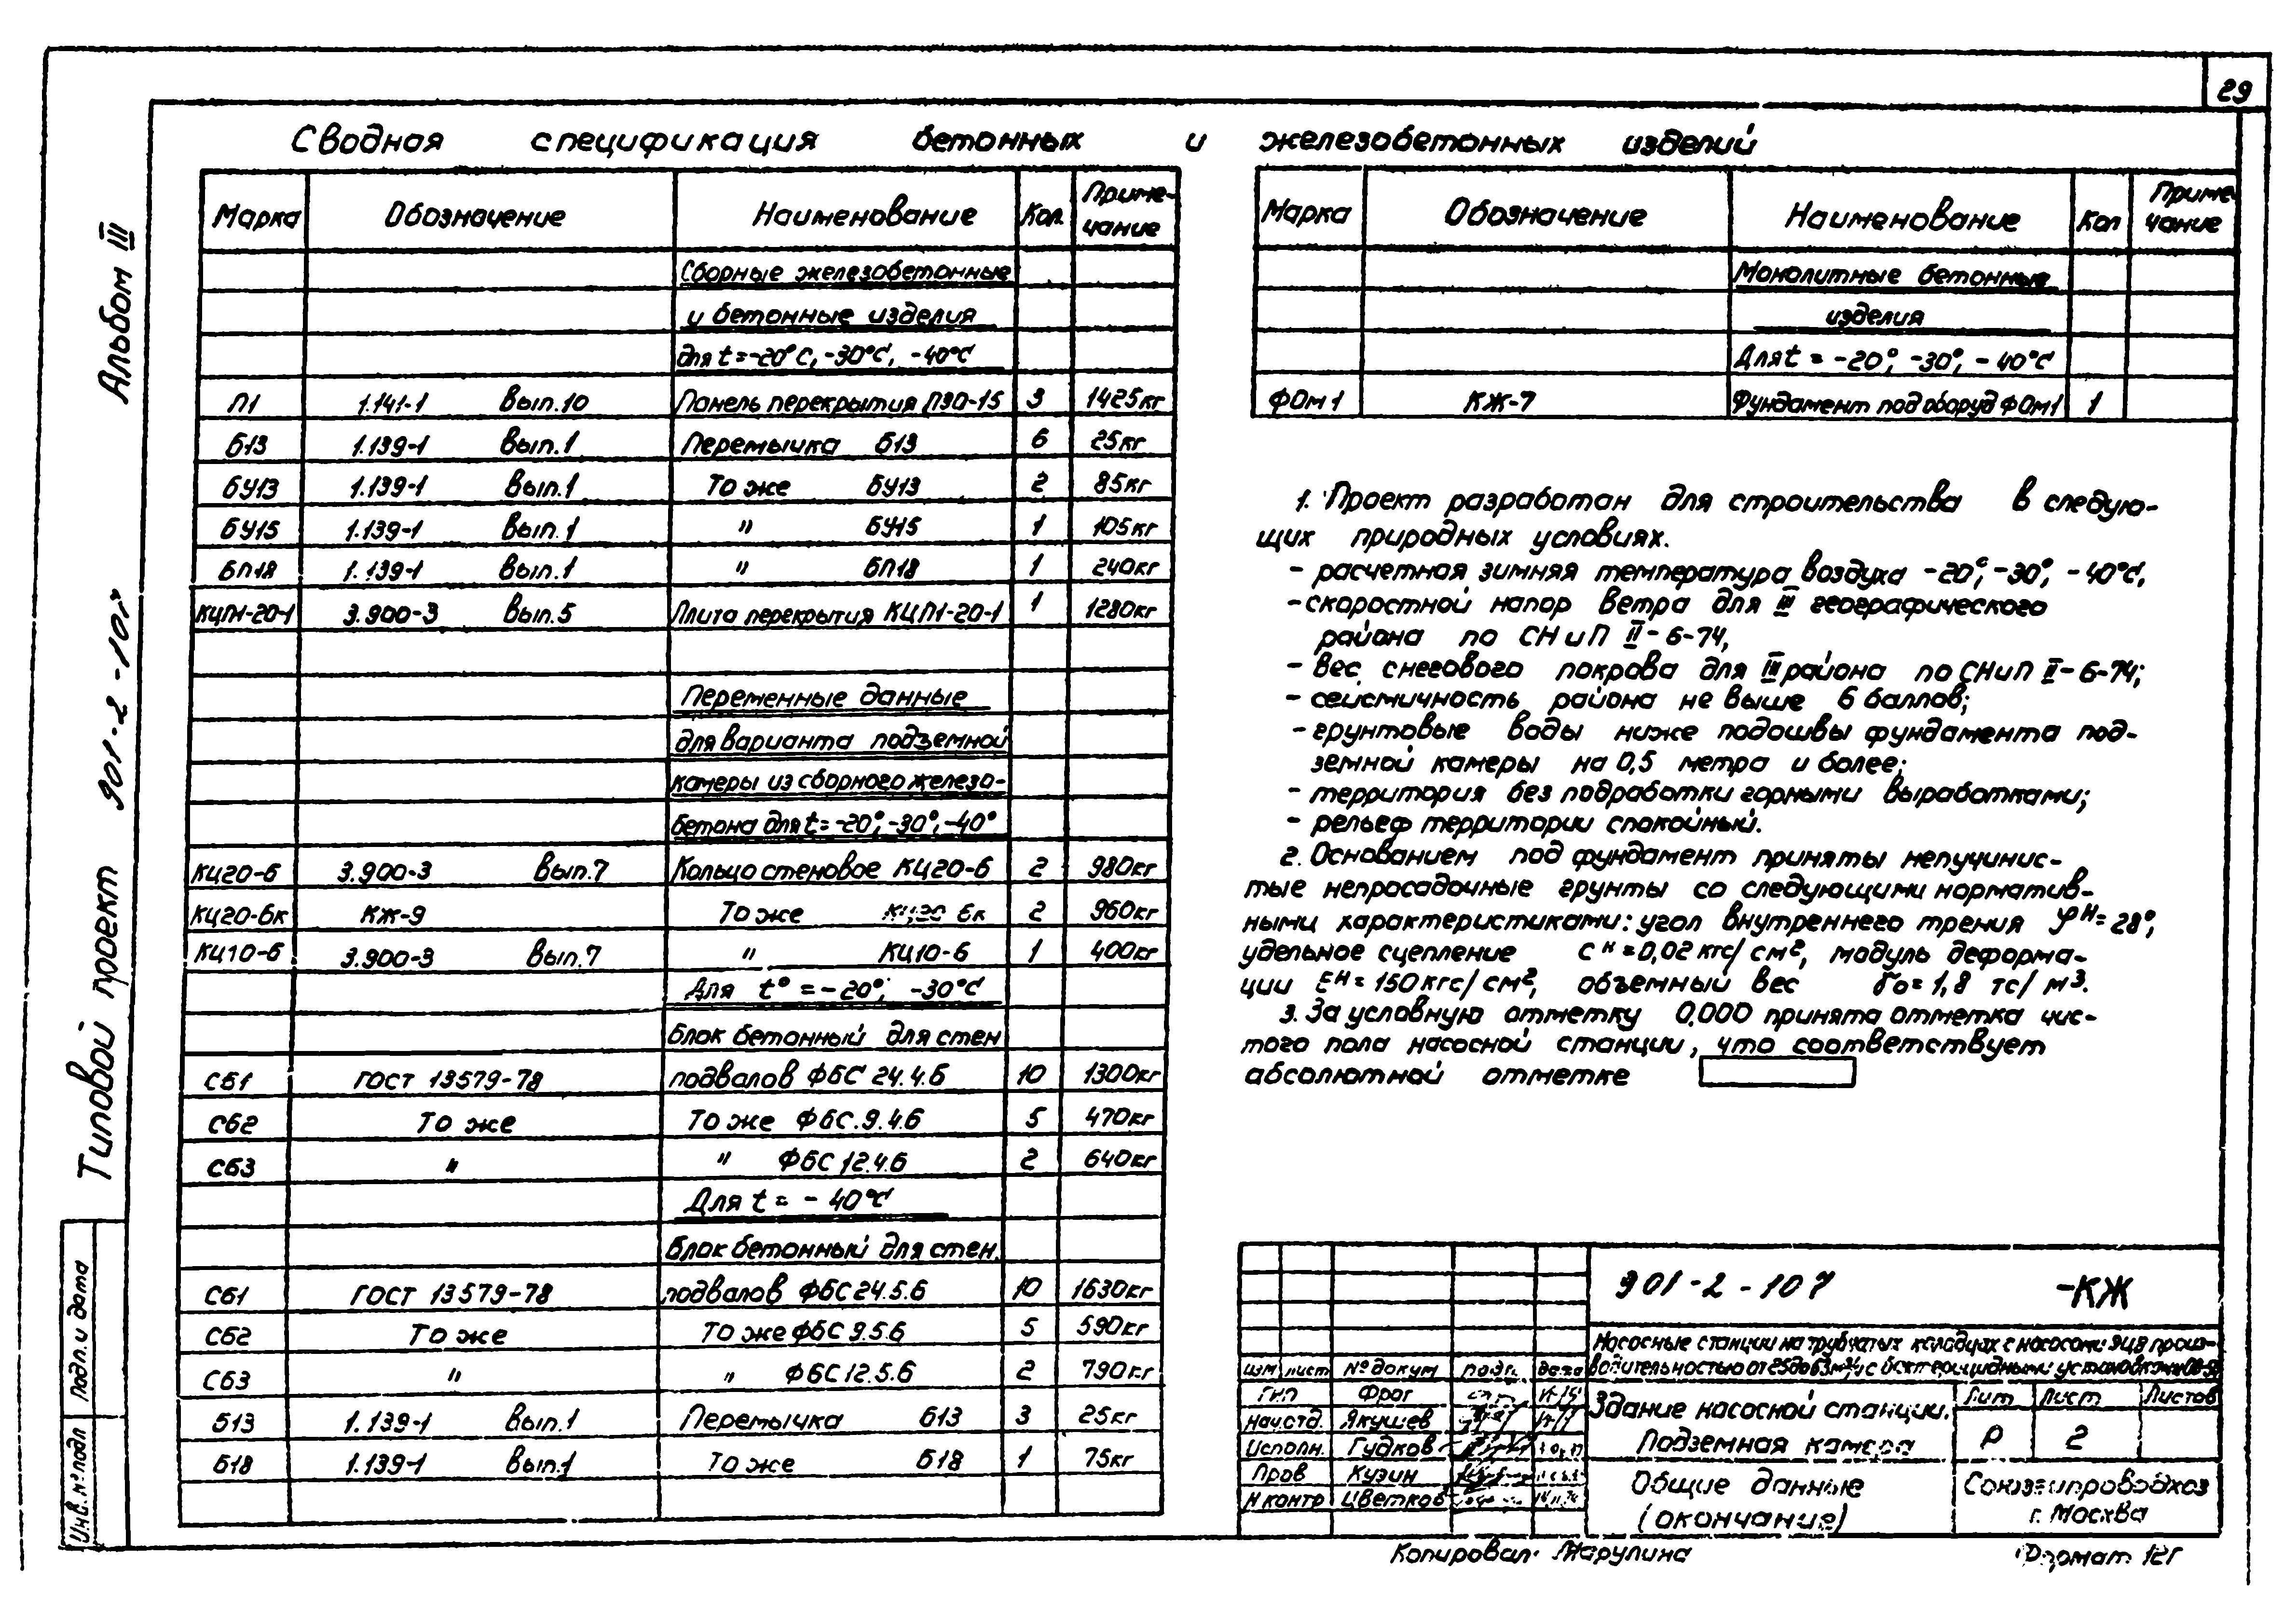 29
Сводная спецификация бетонных и железобетонных изделий
Альбом III
Типовой проект 901-2-107
Подп. и дата
Инв. № подл
Марка Обозначение Наименование Кол. Приме-
чание
Сборные железобетонные
и бетонные изделия
для t=-20°С, -30°С, -40°С
П1 1.141-1 Вып.10 Панель перекрытия П30-15 3 1425кг
Б13 1.139-1 Вып.1 Перемычка Б13 6 25кг
БУ13 1.139-1 Вып.1 То же БУ13 2 85кг
БУ15 1.139-1 Вып.1 " БУ15 1 105кг
БП18 1.139-1 Вып.1 " БП18 1 240кг
КЦП1-20-1 3.900-3 Вып.5 Плита перекрытия КЦП1-20-1 1 1280кг
Переменные данные
для варианта подземной
камеры из сборного железо-
бетона для t=-20°, -30°, -40°
КЦ20-6 3.900-3 Вып.7 Кольцо стеновое КЦ20-6 2 980кг
КЦ20-6к КЖ-9 То же КЦ20-6к 2 960кг
КЦ10-6 3.900-3 Вып.7 " КЦ10-6 1 400кг
Для t°=-20°, -30°С
Блок бетонный для стен
СБ1 ГОСТ 13579-78 подвалов ФБС 24.4.6 10 1300кг
СБ2 То же То же ФБС.9.4.6 5 470кг
СБ3 " " ФБС 12.4.6 2 640кг
Для t = - 40°С
Блок бетонный для стен.
СБ1 ГОСТ 13579-78 подвалов ФБС 24.5.6 10 1630кг
СБ2 То же То же ФБС 9.5.6 5 590кг
СБ3 " " ФБС 12.5.6 2 790кг
Б13 1.139-1 Вып.1 Перемычка Б13 3 25кг
Б18 1.139-1 Вып.1 То же Б18 1 75кг
Марка Обозначение Наименование Кол Приме-
чание
Монолитные бетонные
изделия
Для t = -20°, -30°, -40°С
ФОм1 КЖ-7 Фундамент под оборуд ФОм1 1
1. Проект разработан для строительства в следую-
щих природных условиях.
- расчетная зимняя температура воздуха -20°, -30°, -40°С,
- скоростной напор ветра для III географического
района по СНиП II-6-74,
- вес снегового покрова для III района по СНиП II-6-74;
- сейсмичность района не выше 6 баллов;
- грунтовые воды ниже подошвы фундамента под-
земной камеры на 0,5 метра и более;
- территория без подработки горными выработками;
- рельеф территории спокойный.
2. Основанием под фундамент приняты непучинис-
тые непросадочные грунты со следующими норматив-
ными характеристиками: угол внутреннего трения φᴴ=28°,
удельное сцепление Cᴴ=0,02 кгс/см², модуль деформа-
ции Eᴴ=150 кгс/см², объемный вес γо=1,8 тс/м³.
3. За условную отметку 0.000 принята отметка чис-
того пола насосной станции, что соответствует
абсолютной отметке
901-2-107 -КЖ
Насосные станции на трубчатых колодцах с насосами ЭЦВ произ-
водительностью от 25 до 63 м³/ч с бактерицидными установками
Изм Лист № докум Подп. Дата
ГИП Фрог
Нач.отд. Якушев
Исполн. Гудков
Пров Кузин
Н контр Цветков
Здание насосной станции.
Подземная камера
Лит Лист Листов
Р 2
Общие данные
(окончание)
Союзгипроводхоз
г. Москва
Копировал: Марулина Формат 12Г